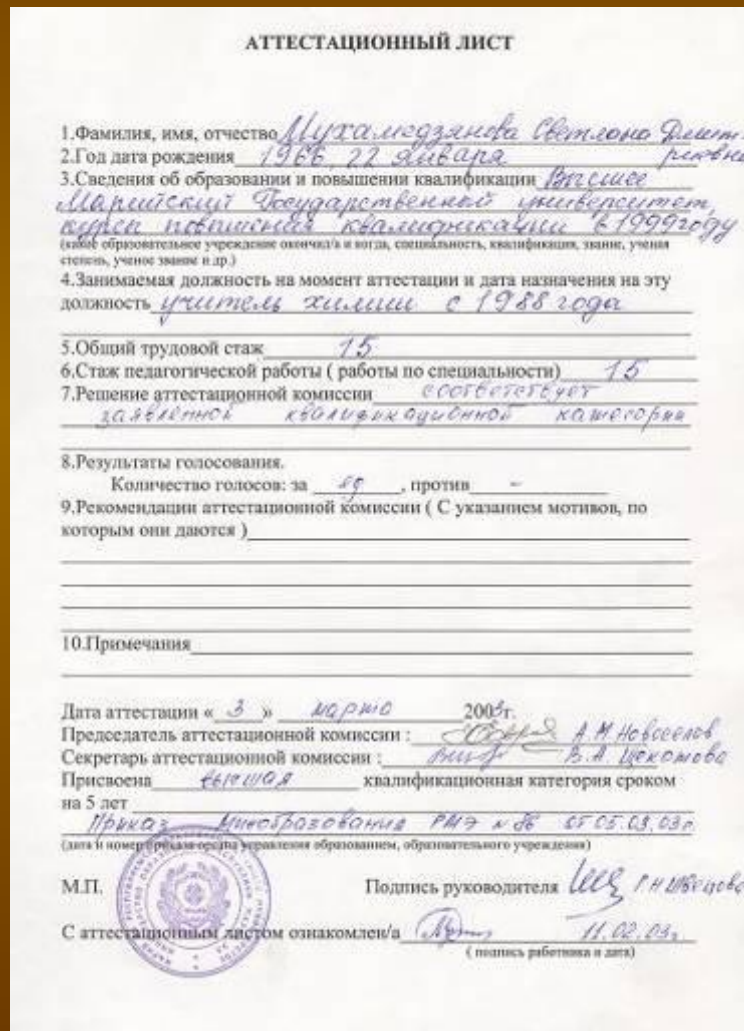 АТТЕСТАЦИОННЫЙ ЛИСТ
1.Фамилия, имя, отчество Мухамедзянова Светлана Дмит-
риевна
2.Год дата рождения 1966, 22 января
3.Сведения об образовании и повышении квалификации Высшее
Марийский Государственный университет,
курсы повышения квалификации в 1999 году
(какое образовательное учреждение окончил/а и когда, специальность, квалификация, звание, ученая
степень, ученое звание и др.)
4.Занимаемая должность на момент аттестации и дата назначения на эту
должность учитель химии с 1988 года
5.Общий трудовой стаж 15
6.Стаж педагогической работы ( работы по специальности) 15
7.Решение аттестационной комиссии соответствует
заявленной квалификационной категории
8.Результаты голосования.
Количество голосов: за , против –
9.Рекомендации аттестационной комиссии ( С указанием мотивов, по
которым они даются )
10.Примечания
Дата аттестации « 3 » марта 2003г.
Председатель аттестационной комиссии : А.М. Новоселов
Секретарь аттестационной комиссии : В.А.
Присвоена высшая квалификационная категория сроком
на 5 лет
Приказ Минобразования РМЭ № 86 от 05.03.03г
(дата и номер приказа органа управления образованием, образовательного учреждения)
М.П. Подпись руководителя Г.Н. Швецова
С аттестационным листом ознакомлен/а 11.02.03г
( подпись работника и дата)